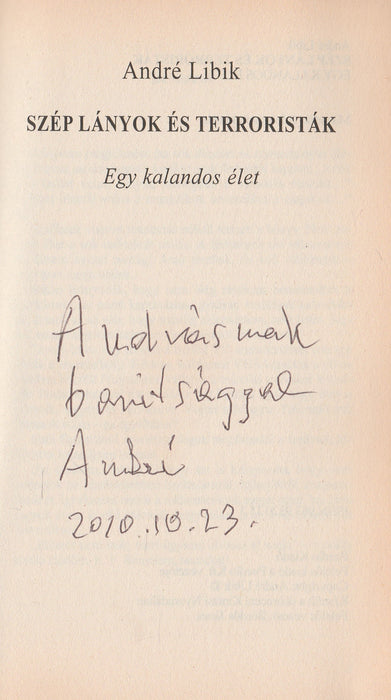 André Libik
SZÉP LÁNYOK ÉS TERRORISTÁK
Egy kalandos élet
Andrásnak
barátsággal
André
2010.10.23.